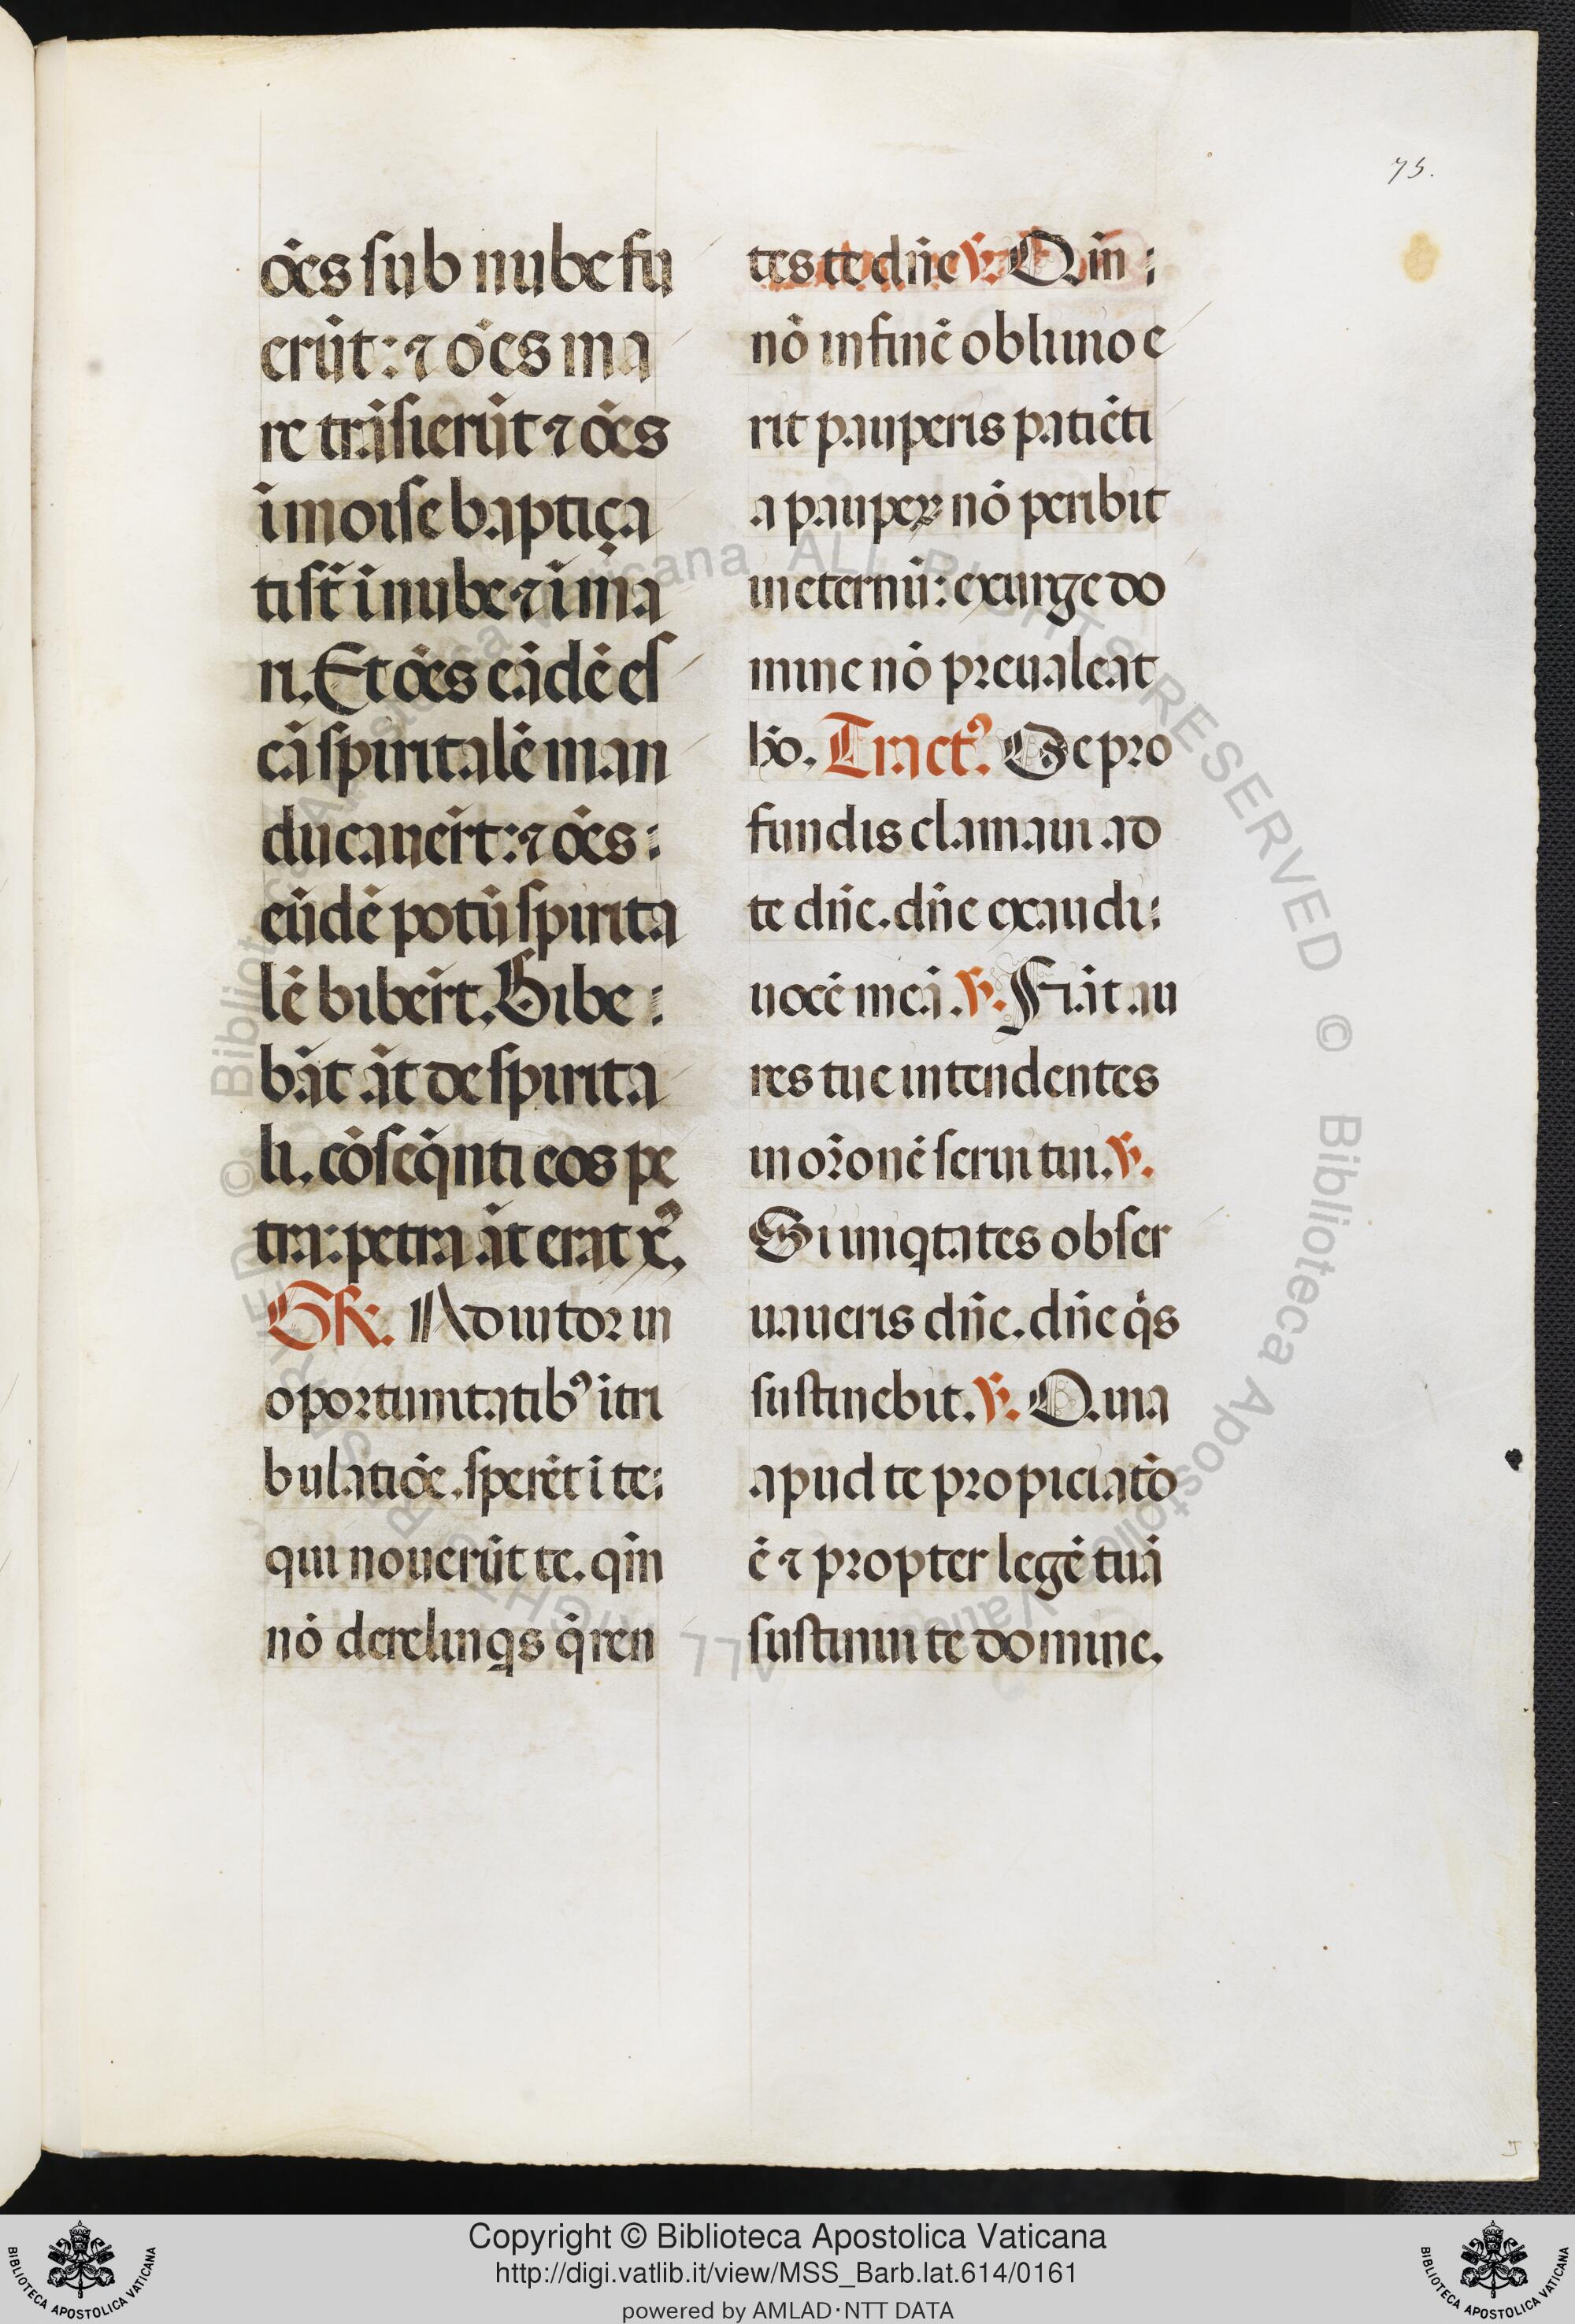 75.
o᷑es sub nube fu
erūt: ⁊ o᷑es ma
re trāsierūt ⁊ o᷑es
ī moise baptiça
ti sṫ ī nube ⁊ ī ma
ri. Et o᷑es eādē es
cā spiritalē man
ducauer̄t: ⁊ o᷑es :
eūdē potū spirita
lē biber̄t. Bibe :
bāt āt de spirita
li. cōseq̄nti eos pe
tra: petra āt erat xꝰ.
GR. Adiutor in
oportunitatibꝰ ī tri
bulatiōe. sperēt ī te :
qui nouerūt te. qm̄
nō derelinqs q̄ren
tes te dn̄e ℣. Qm̄ :
nō in finē obliuio e
rit pauperis patiēti
a pauperꝝ nō peribit
in eternū: exurge do
mine nō preualeat
hō. Tractꝰ. De pro
fundis clamaui ad
te dn̄e. dn̄e exaudi :
uocē meā. ℣. Fiāt au
res tue intendentes
in or̄onē serui tui. ℣.
Si iniqtates obser
uaueris dn̄e. dn̄e q̇s
sustinebit. ℣. Quia
apud te propiciatō
ē ⁊ propter legē tuā
sustinui te domine.
© Biblioteca Apostolica Vaticana ALL RIGHTS RESERVED © Biblioteca Apostolica Vaticana ALL RIGHTS RESERVED
Copyright © Biblioteca Apostolica Vaticana
http://digi.vatlib.it/view/MSS_Barb.lat.614/0161
powered by AMLAD·NTT DATA
BIBLIOTECA APOSTOLICA VATICANA
BIBLIOTECA APOSTOLICA VATICANA